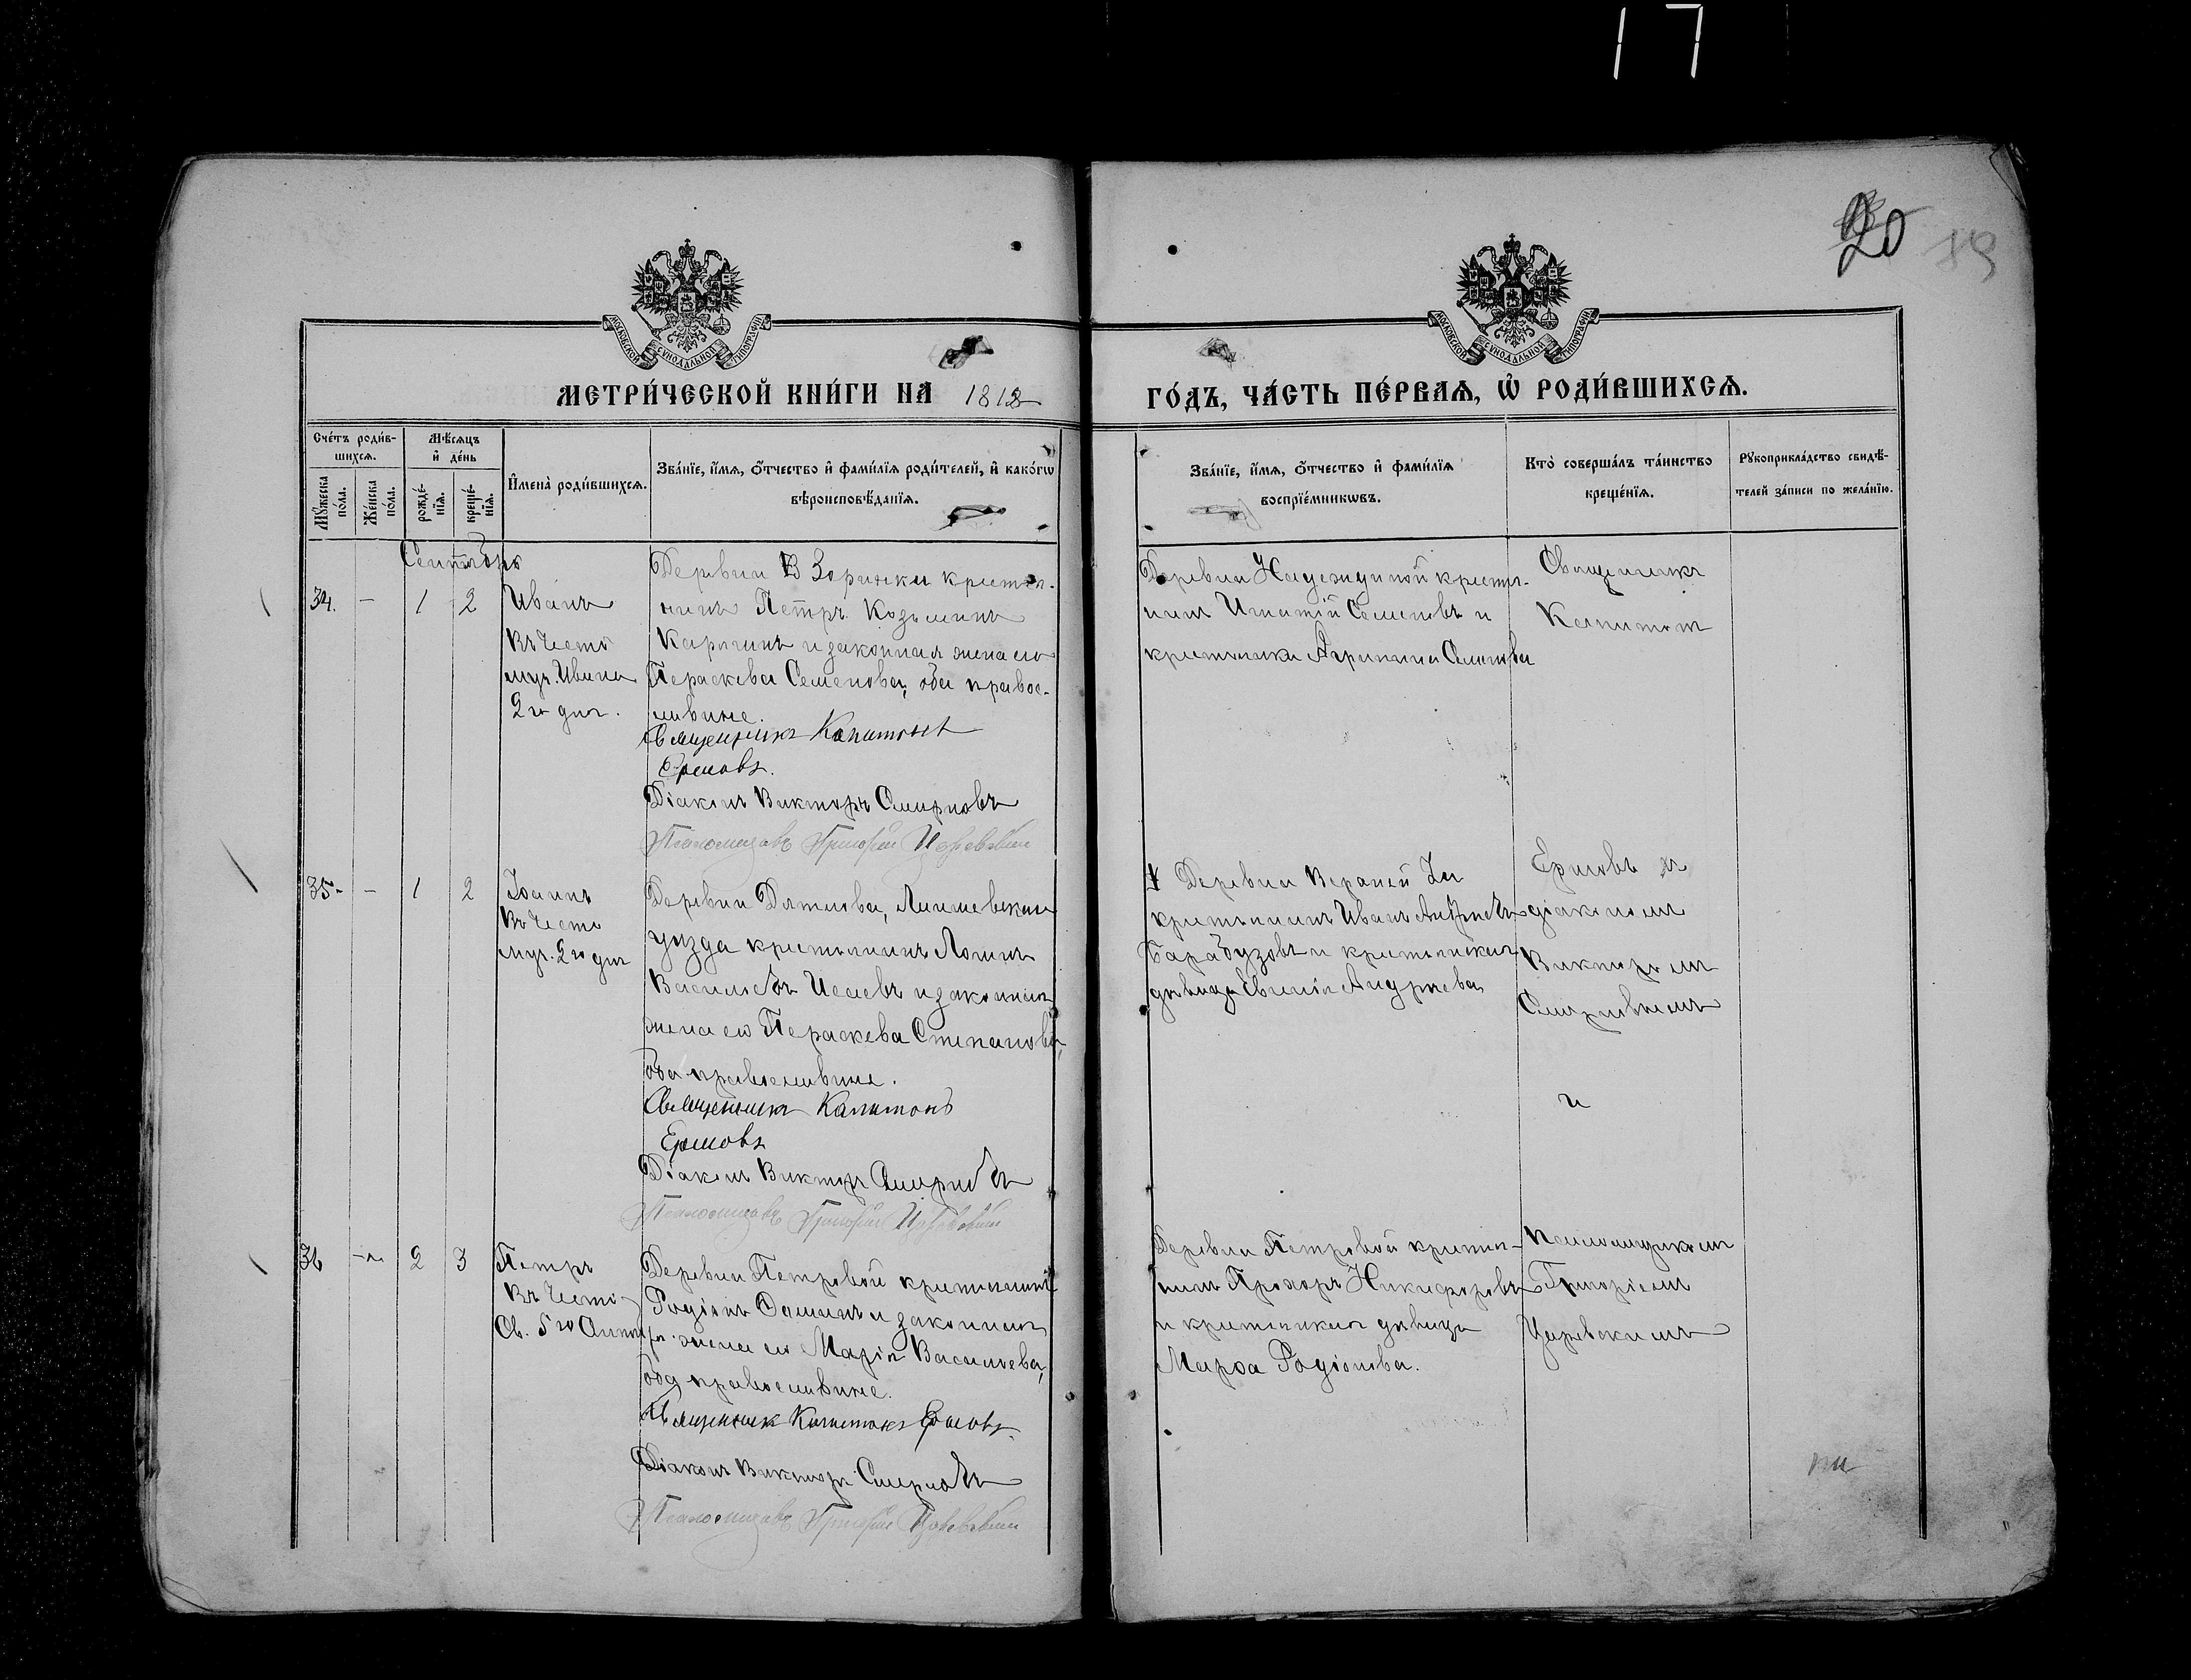 17
20
19
МОСКОВСКОЙ СѴНОДАЛЬНОЙ ТИПОГРАФІИ
МОСКОВСКОЙ СѴНОДАЛЬНОЙ ТИПОГРАФІИ
МЕТРИ́ЧЕСКОЙ КНИ́ГИ НА 1818
ГО́ДЪ, ЧА́СТЬ ПЕ́РВАѦ, Ѡ҆ РОДИ́ВШИХСѦ.
Сче́тъ роди́в-
шихсѧ.
Мꙋ́жеска по́ла.
Же́нска по́ла.
Мѣ́сѧцъ и҆ де́нь
рожде́-
нїѧ.
креще́-
нїѧ.
И҆мена̀ роди́вшихсѧ.
Зва́нїе, и҆́мѧ, ѻ҆́тчество и҆ фами́лїѧ роди́телей, и҆ како́гѡ
вѣроисповѣ́данїѧ.
Зва́нїе, и҆́мѧ, ѻ҆́тчество и҆ фами́лїѧ
воспрїе́мникѡвъ.
Кто̀ соверша́лъ та́инство
креще́нїѧ.
Рꙋкоприкла́дство свидѣ́-
телей за́писи по жела́нїю.
Сентябрь
34. - 1 2
Иванъ
въ честь
муч. Ивана
2го дня.
Деревни Взоринки кресть-
янинъ Петръ Козьминъ
и законная жена его
Параскева Семенова, оба правос-
лавные.
Священникъ Капитонъ
Ершовъ.
Діаконъ Викторъ Смирновъ
Псаломщикъ Григорій Царевскій
Деревни Надеждиной кресть-
нинъ Игнатій Семеновъ и
крестьянка Агрипина Семенова
Священникъ
Капитонъ
35. - 1 2
Іоаннъ
въ честь
муч. 2го дня
Деревни Дятлова,
уезда крестьянинъ Логинъ
Васильевъ Исаевъ и законная
жена его Параскева Степанова,
оба православные.
Священникъ Капитонъ
Ершовъ
Діаконъ Викторъ Смирновъ
Псаломщикъ Григорій Царевскій
Деревни Верхней
крестьянинъ Иванъ Андреевъ
Барабузовъ и крестьянская
девица Евгенія Андреева
Ершовъ съ
діакономъ
Викторомъ
Смирновымъ
и
36 - 2 3
Петръ
въ честь
Св.
Деревни Петровой крестьянинъ
Родіонъ Фоминъ и законная
жена его Марія Васильева,
оба православные.
Священникъ Капитонъ Ершовъ.
Діаконъ Викторъ Смирновъ
Псаломщикъ Григорій Царевскій
Деревни Петровой кресть-
нинъ Прохоръ Никифоровъ
и крестьянская девица
Марѳа Родіонова.
Псаломщикомъ
Григоріемъ
Царевскимъ